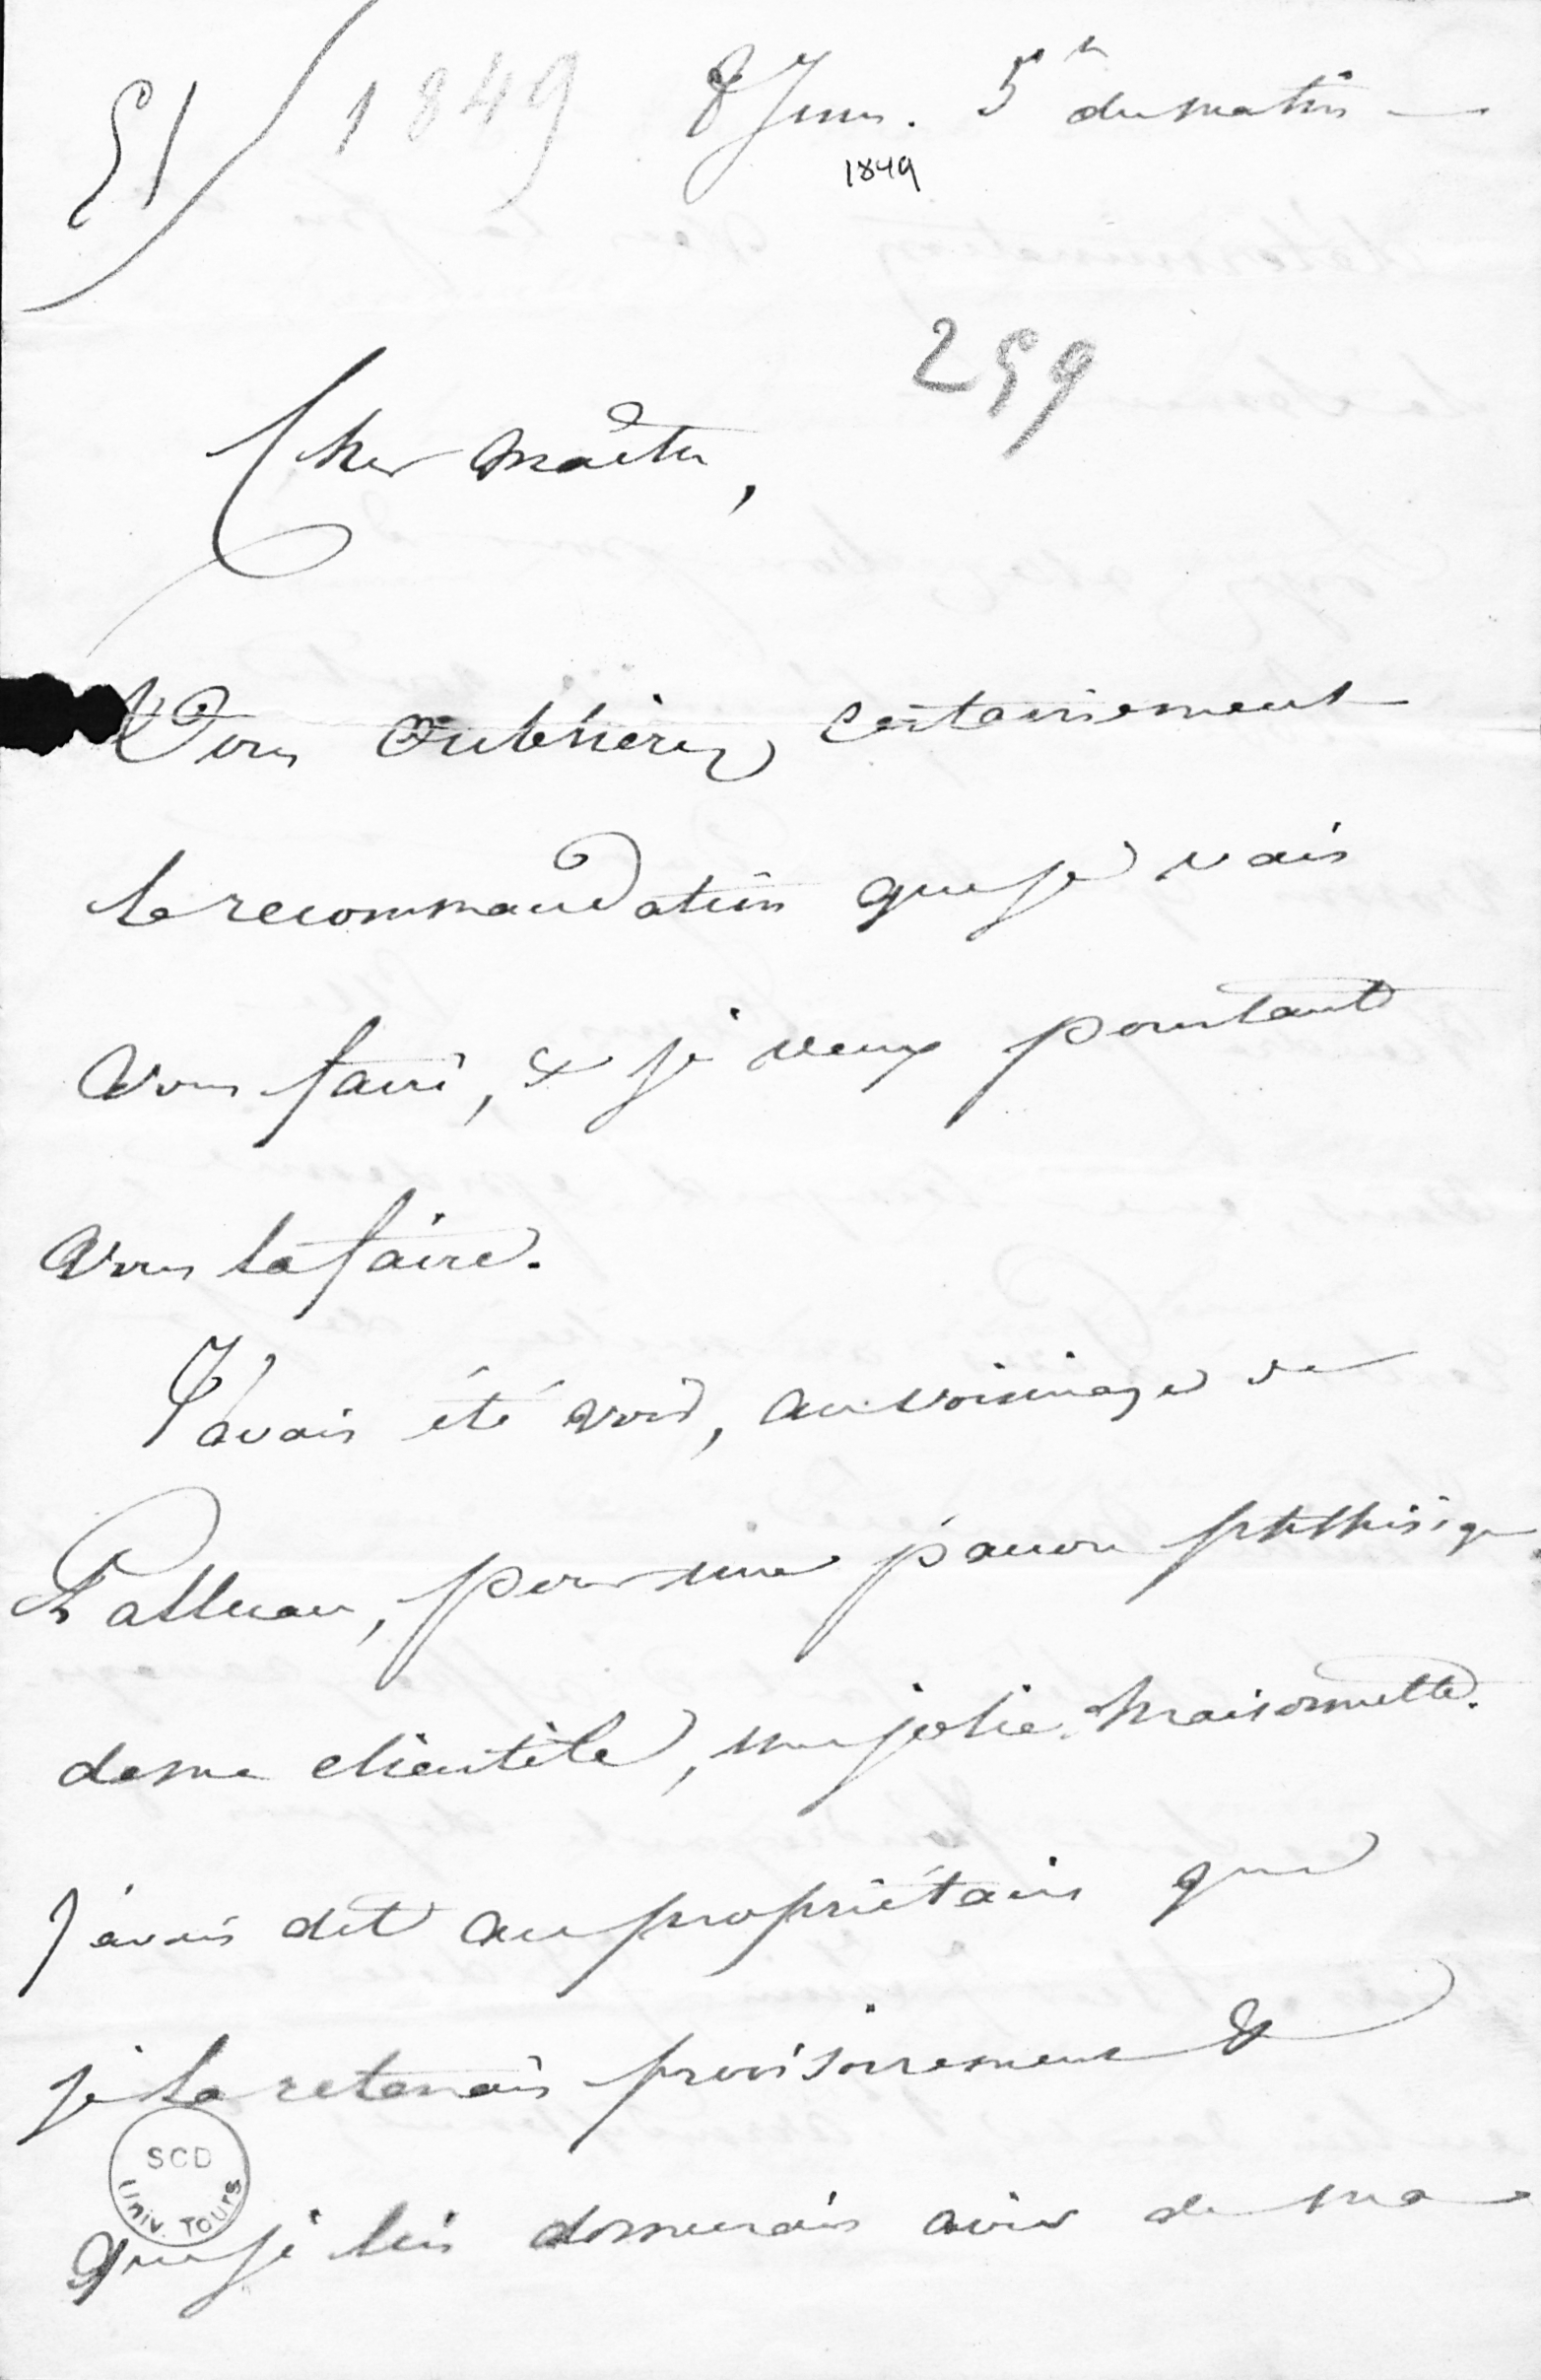 51 1849 8 Juin. 5h du matin —
1849
259
Cher maître,
Vous oublierez certainement
la recommandation que je vais
vous faire, & je veux pourtant
vous la faire.
J'avais été voir, au voisinage de
Palluau, pour une pauvre phthisique
de ma clientèle, une jolie maisonnette.
J'avais dit au propriétaire que
je la retenais provisoirement &
que je lui donnerais avis de ma
SCD
Univ. Tours